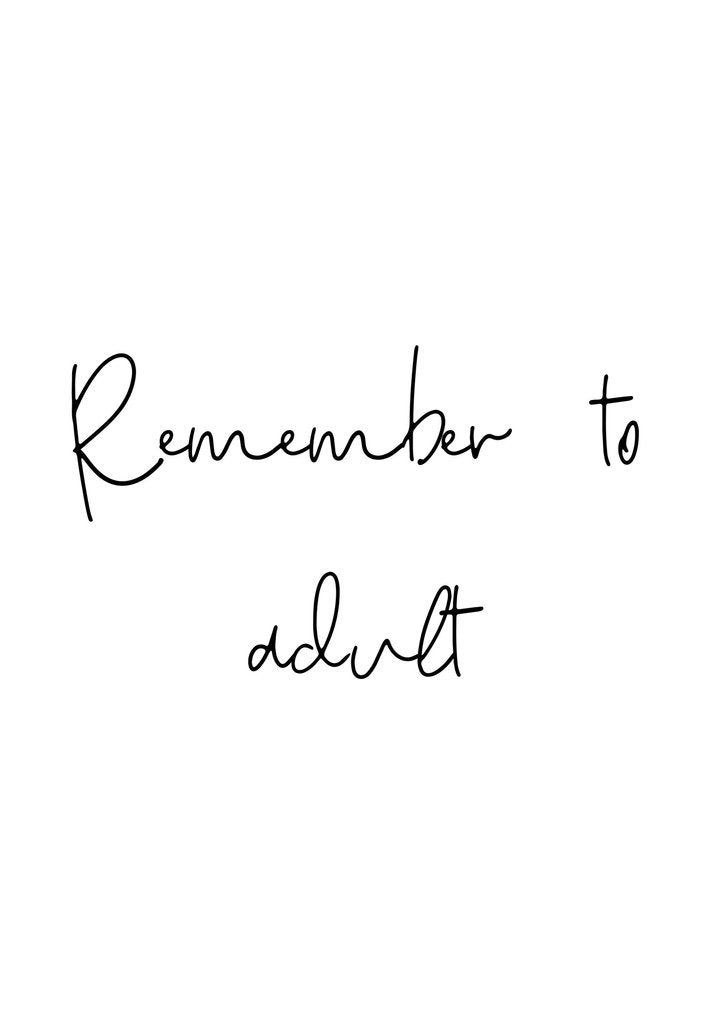 Remember to
adult